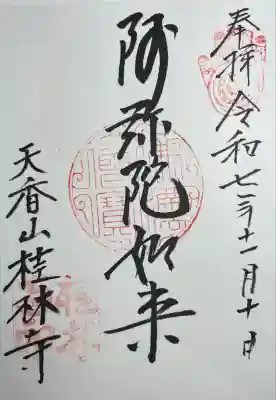 奉拝 令和七年十一月十日
阿弥陀如来
天香山桂林寺